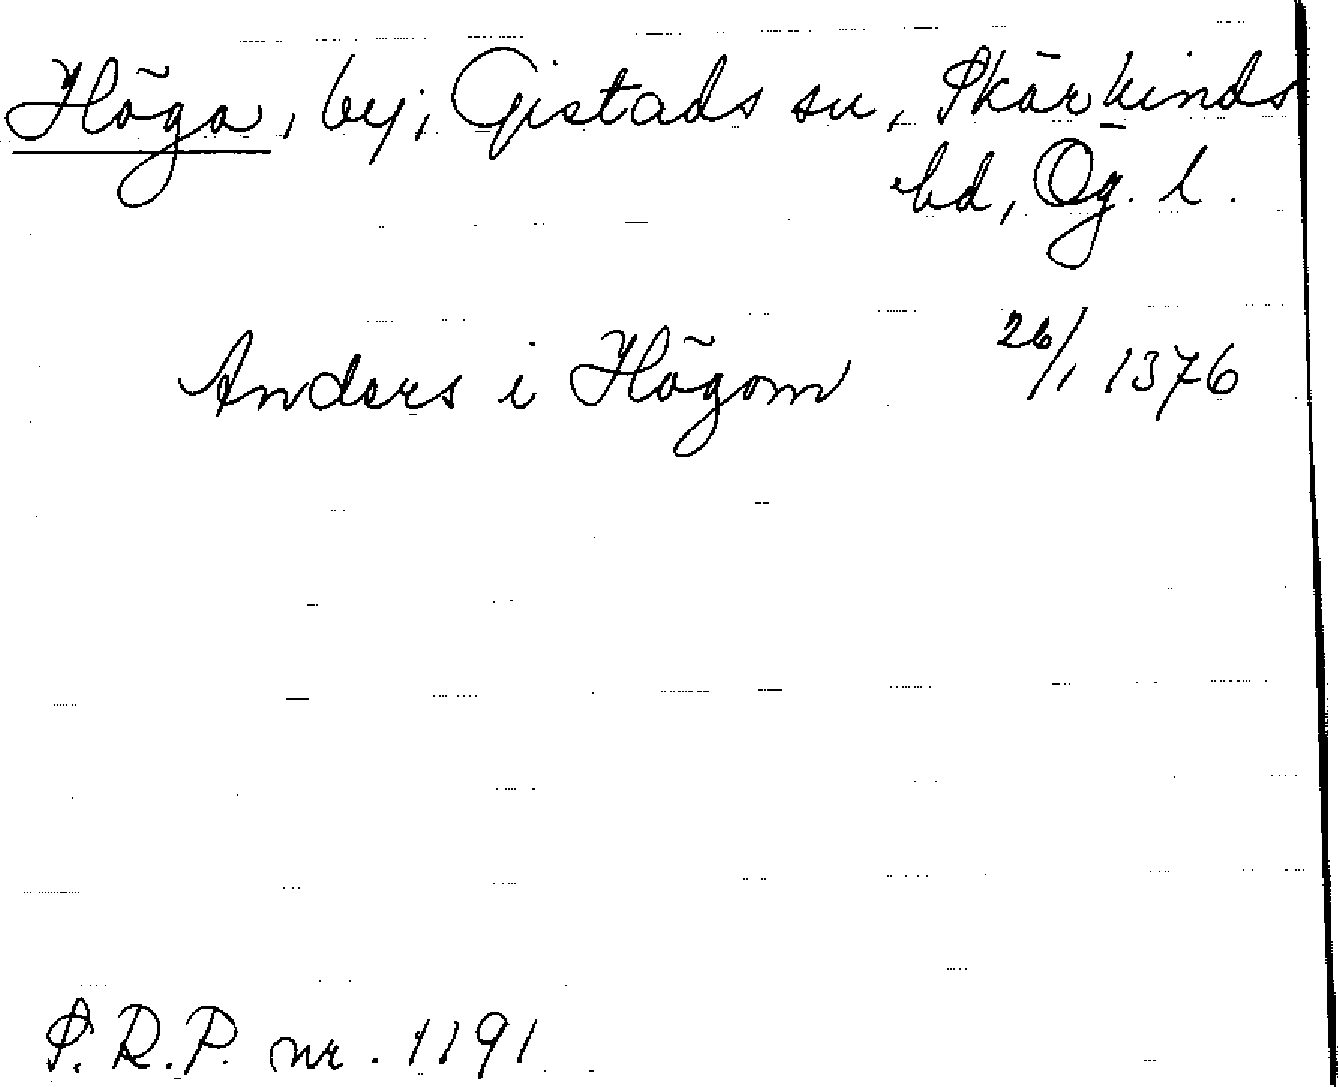 Höga, by, Gistads sn, Skärkinds
hd, Ög. l.
Anders i Högom 26/1 1376
S.R.P. nr. 1191